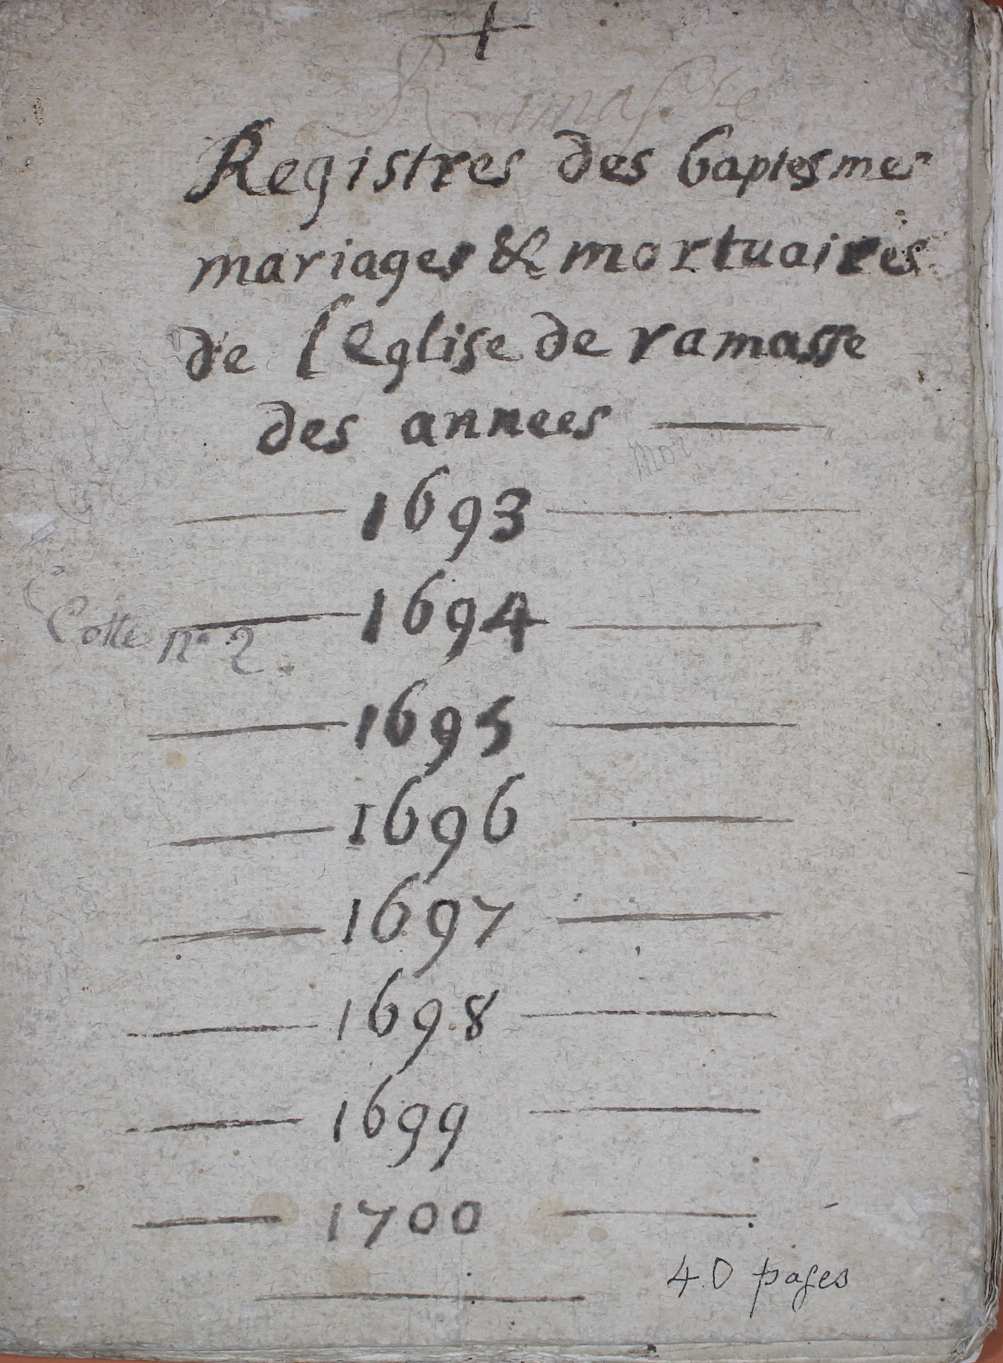 +
Ramasse
Registres des baptesmes
mariages & mortuaires
de l'eglise de ramasse
des annees
1693
1694
Cotte n° 2.
1695
1696
1697
1698
1699
1700
40 pages